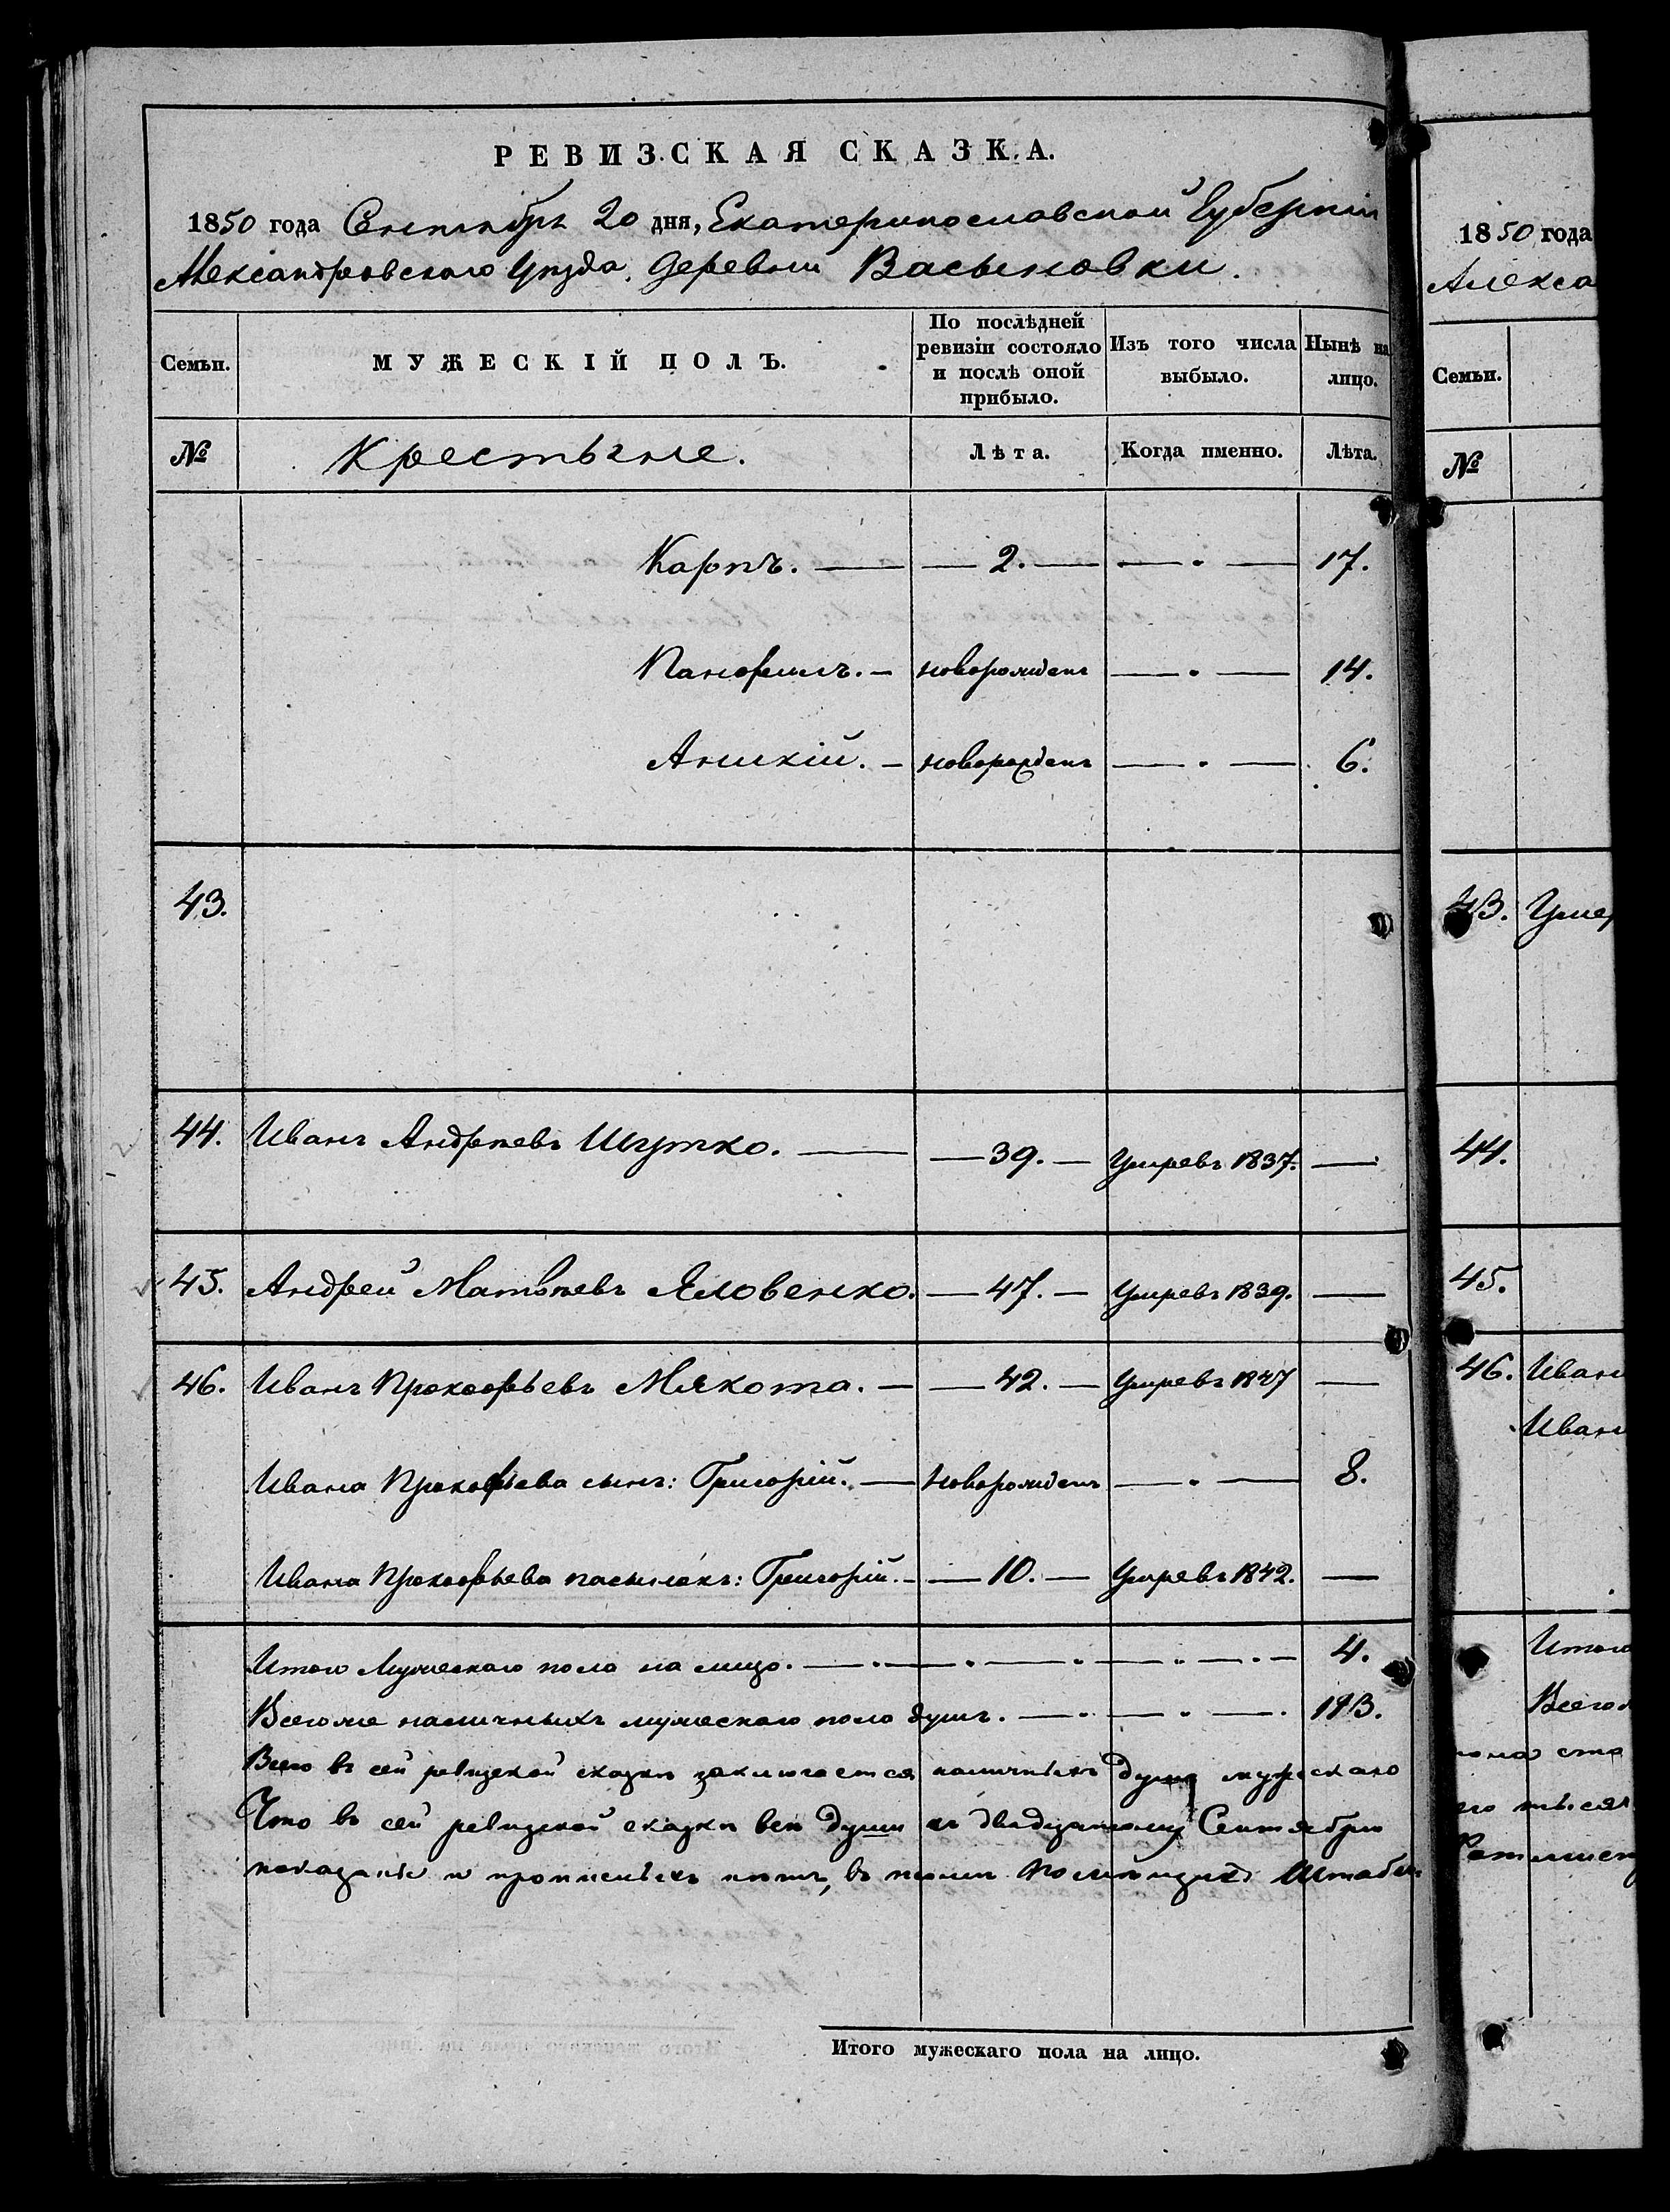 РЕВИЗСКАЯ СКАЗКА.
1850 года Сентября 20 дня, Екатеринославской Губерніи
Александровского Уѣзда, деревни Васьковки.
Семьи. МУЖЕСКІЙ ПОЛЪ. По послѣдней ревизіи состояло и послѣ оной прибыло. Изъ того числа выбыло. Нынѣ на лицо.
№ Крестьяне. Лѣта. Когда именно. Лѣта.
Карпъ. — 2. — 17.
Панфилъ. — новорожденъ — 14.
Аникій. — новорожденъ — 6.
43.
44. Иванъ Андреевъ Шутко. — 39. — Умревъ 1837. —
45. Андрей Матвѣевъ Яловенко. — 47. — Умревъ 1839. —
46. Иванъ Прокофьевъ Мякота. — 42. — Умревъ 1847 —
Ивана Прокофьева сынъ: Григорій. — Новорожденъ — 8.
Ивана Прокофьева пасынокъ: Григорій. — 10. — Умревъ 1842. —
Итого Мужескаго пола на лицо. — 4.
Всего же наличныхъ мужескаго пола душъ. — 193.
Всего въ сей ревизской сказкѣ заключается наличныхъ душъ мужескаго
Что въ сей ревизской сказкѣ всѣ души къ двадцатому Сентября
показаны и прописныхъ нѣтъ, въ томъ
Итого мужескаго пола на лицо.
1850 года
Алекса
Семьи.
№
43. Умер
44.
45.
46. Иван
Иван
Итого
Всего